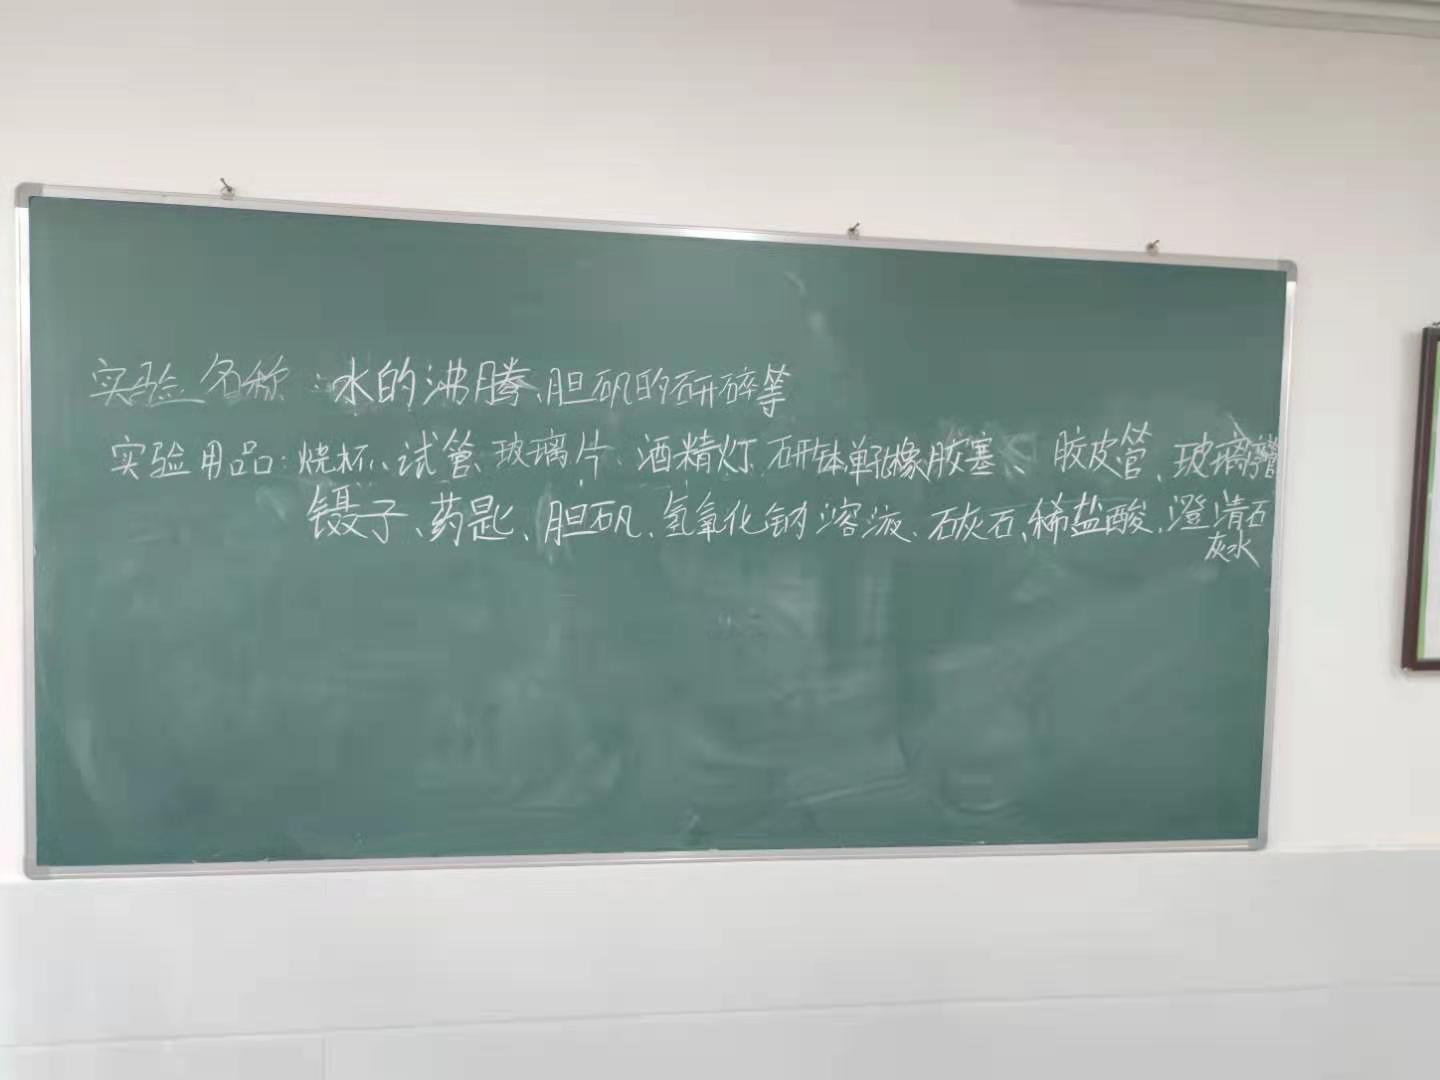 实验名称：水的沸腾、胆矾的研碎等
实验用品：烧杯、试管、玻璃片、酒精灯、研钵单孔橡胶塞、胶皮管、玻璃弯管
镊子、药匙、胆矾、氢氧化钠溶液、石灰石、稀盐酸、澄清石
灰水